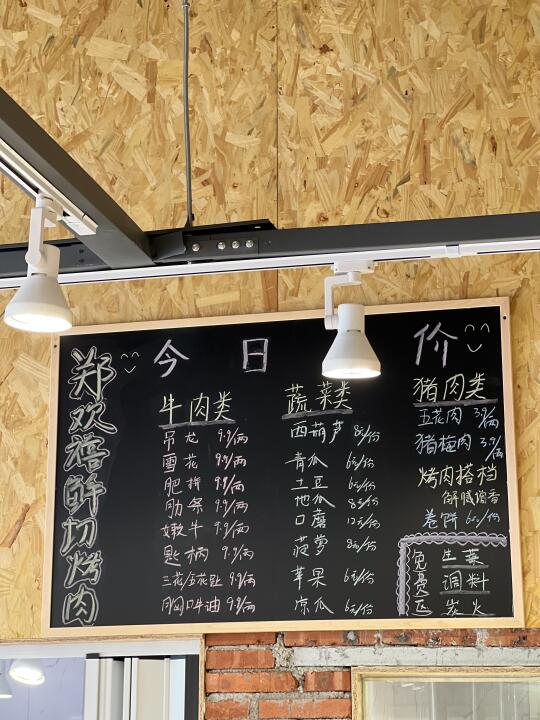 郑欢禧鲜切烤肉
今日价
牛肉类
吊龙 9.9/两
雪花 9.9/两
肥拼 9.9/两
肋条 9.9/两
嫩牛 9.9/两
匙柄 9.9/两
三花/五花趾 9.9/两
胸口牛油 9.9/两
蔬菜类
西葫芦 8元/份
青瓜 6元/份
土豆 6元/份
地瓜 8元/份
口蘑 12元/份
菠萝 8元/份
苹果 6元/份
凉瓜 6元/份
猪肉类
五花肉 3.9/两
猪梅肉 3.9/两
烤肉搭档
解腻增香
卷饼 6元/份
免费区
生菜
调料
炭火